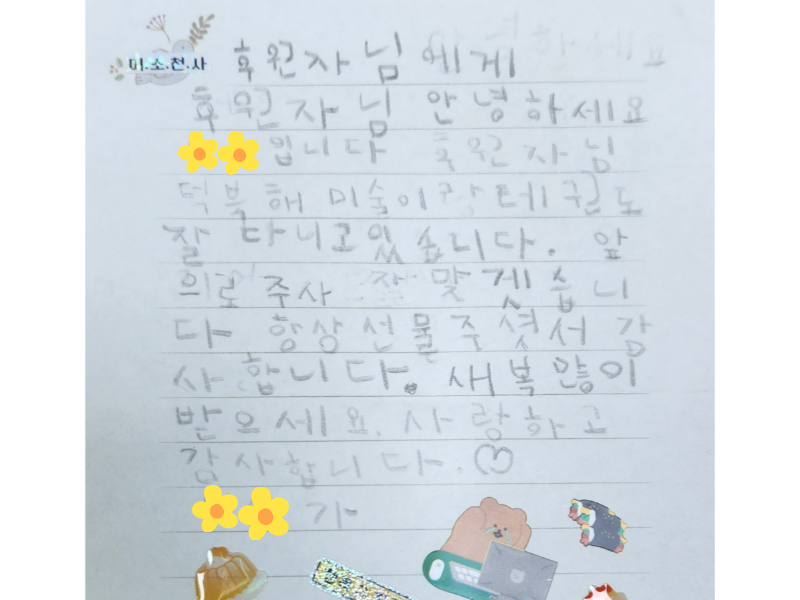 미·소·천·사
후원자님에게
후원자님 안녕하세요
입니다 후원자님
덕북해 미술이랑 태권도
잘 다니고있습니다. 앞
의로 주사 잘 맞겟습니
다 항상 선물 주셧서 감
사합니다. 새복많이
받으세요. 사랑하고
감사합니다.♡
가